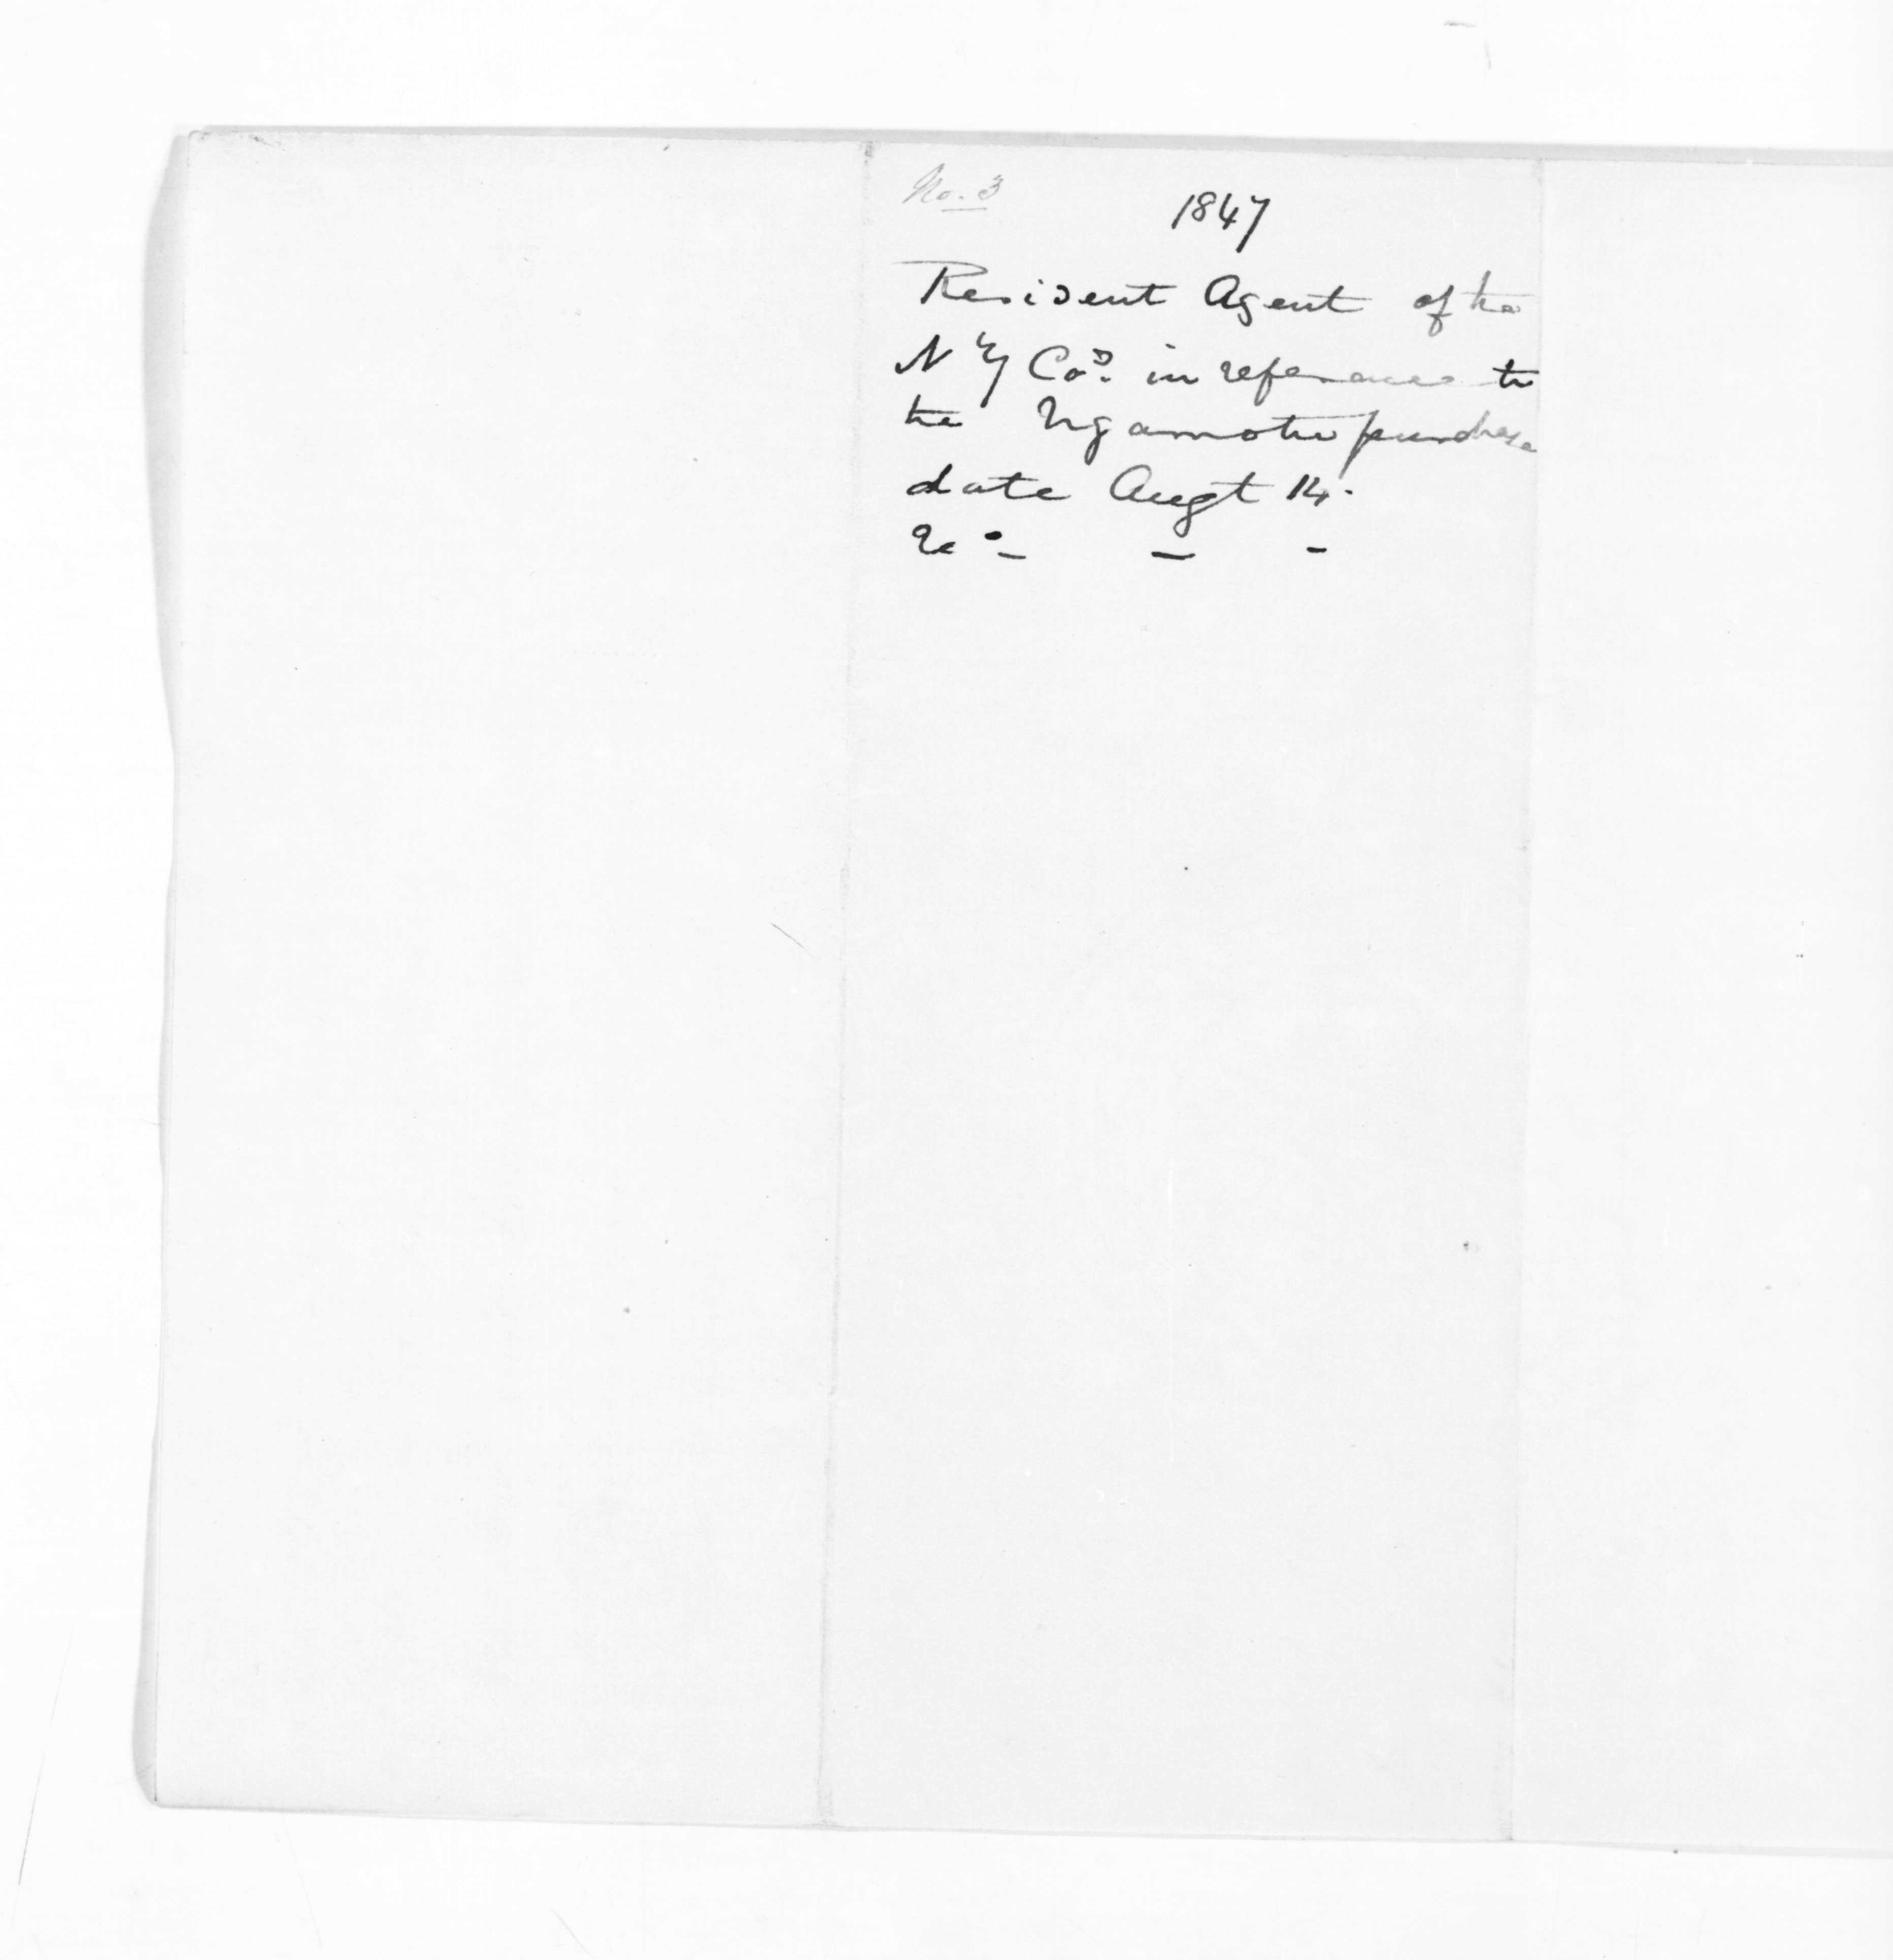 No. 3
1847
Resident Agent of the
N Z Co. in reference to
the Ngamotu purchase
date Augt 14.